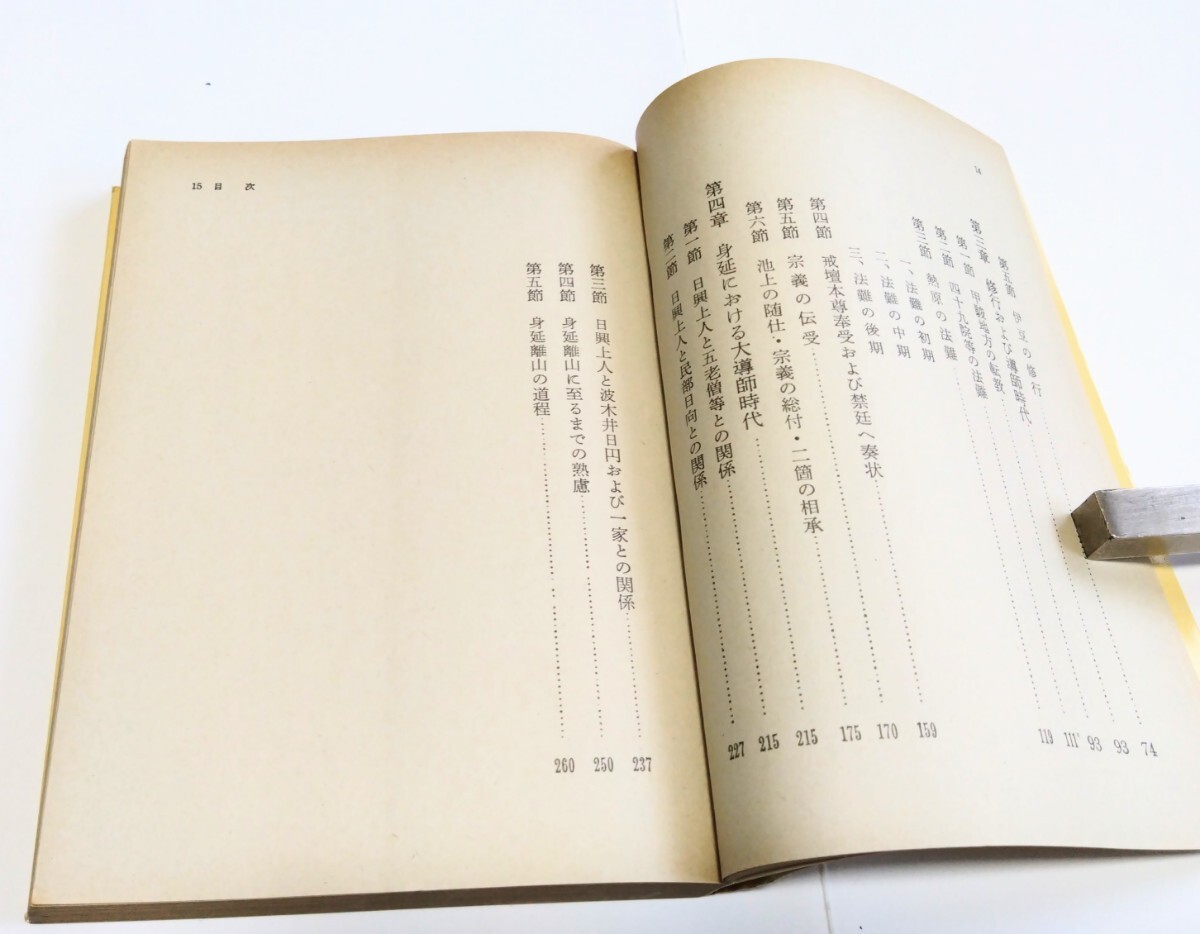 14
第五節 伊豆の修行……74
第三章 修行および導師時代……93
第一節 甲駿地方の転教……93
第二節 四十九院等の法難……111
第三節 熱原の法難……119
一、法難の初期
二、法難の中期
三、法難の後期
第四節 戒壇本尊奉受および禁廷へ奏状……159
第五節 宗義の伝受……170
第六節 池上の随仕・宗義の総付・二箇の相承……175
第四章 身延における大導師時代……215
第一節 日興上人と五老僧等との関係……215
第二節 日興上人と民部日向との関係……227
15 目次
第三節 日興上人と波木井日円および一家との関係……237
第四節 身延離山に至るまでの熟慮……250
第五節 身延離山の道程……260